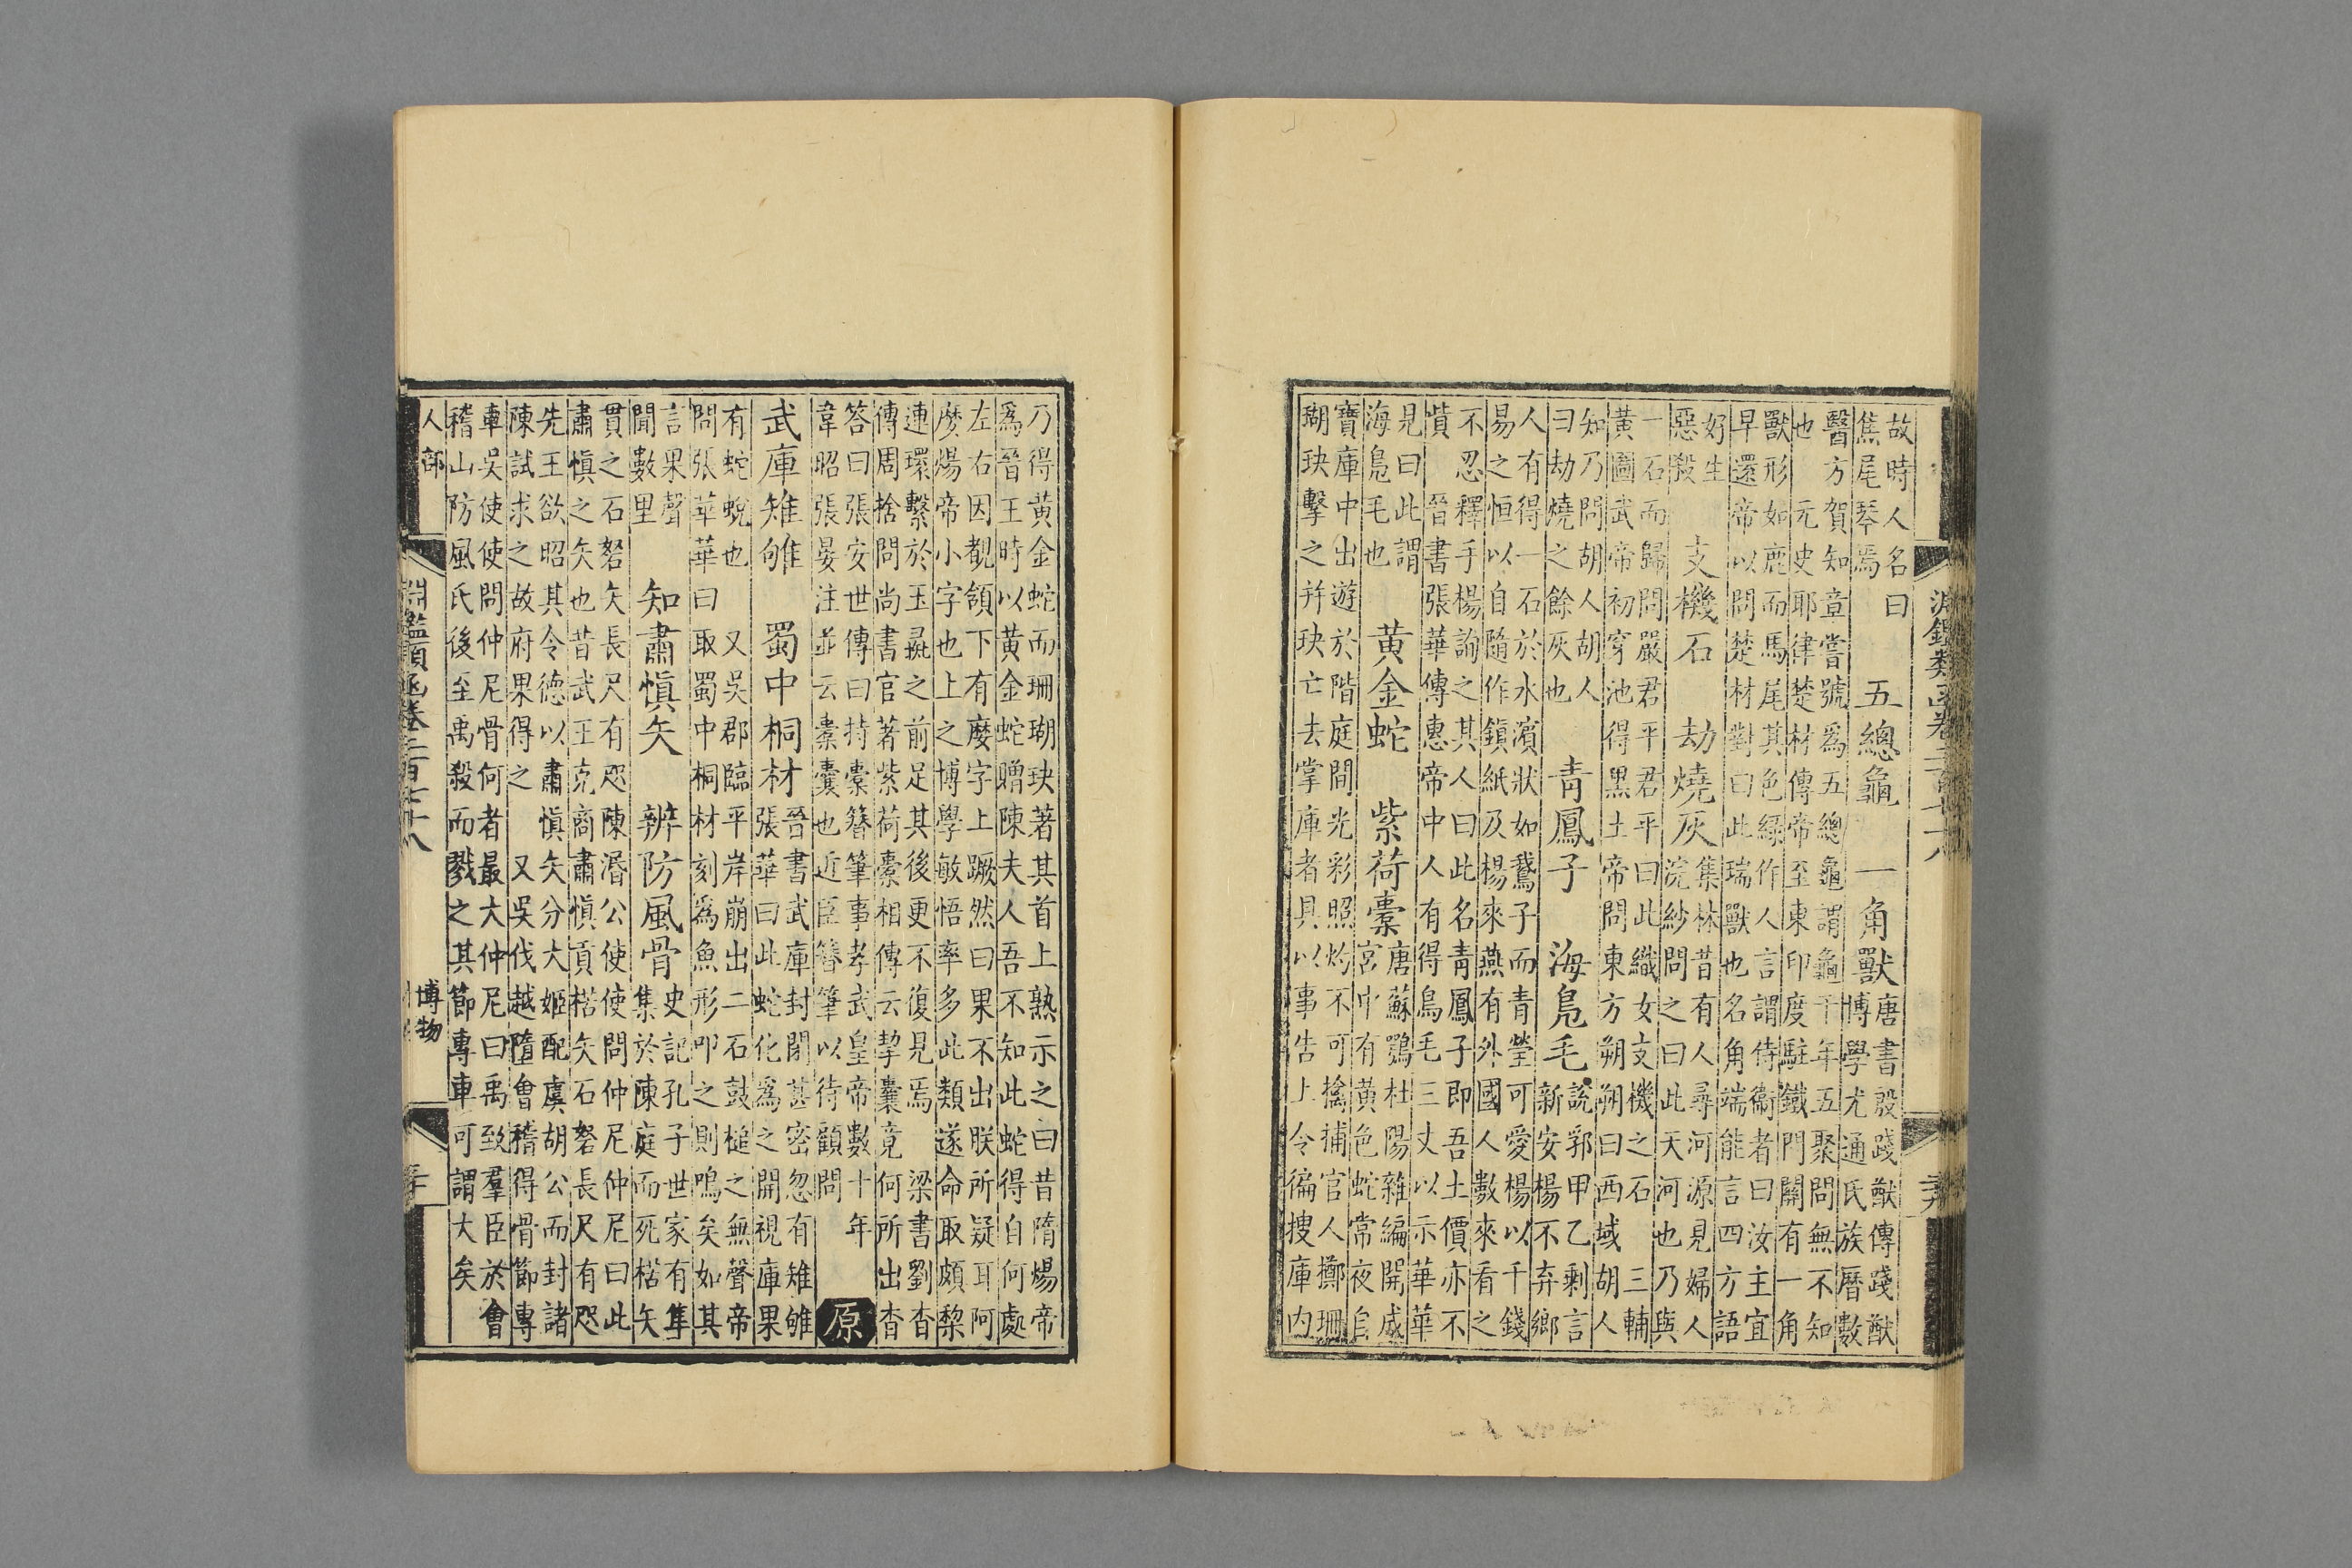 淵鑑類函卷三百二十八
故時人名曰
焦尾琴焉
五總龜　一角獸
唐書殷踐猷傳踐猷
博學尤通氏族曆數
醫方賀知章嘗號為五總龜謂龜千年五聚問無不知
也　元史耶律楚材傳帝至東印度駐鐵門關有一角
獸形如鹿而馬尾其色綠作人言謂侍衞者曰汝主宜
早還帝以問楚材對曰此瑞獸也名角端能言四方語
好生
惡殺
支機石　劫燒灰
集林昔有人尋河源見婦人
浣紗問之曰此天河也乃與
一石而歸問嚴君平君平曰此織女支機之石　三輔
黃圖武帝初穿池得黑土帝問東方朔朔曰西域胡人
知乃問胡人胡人
曰劫燒之餘灰也
青鳳子　海鳧毛
說郛甲乙剩言
新安楊不弃鄉
人有得一石於水濱狀如鵞子而青瑩可愛楊以千錢
易之恒以自隨作鎮紙及楊來燕有外國人數來看之
不忍釋手楊詢之其人曰此名青鳳子即吾土價亦不
貲　晉書張華傳惠帝中人有得鳥毛三丈以示華華
見曰此謂
海鳧毛也
黃金蛇　紫荷橐
唐蘇鶚杜陽雜編開成
宮中有黃色蛇常夜自
寶庫中出遊於階庭間光彩照灼不可擒捕官人擲珊
瑚玦擊之幷玦亡去掌庫者具以事告上令徧搜庫内
乃得黃金蛇而珊瑚玦著其首上熟示之曰昔隋煬帝
為晉王時以黃金蛇贈陳夫人吾不知此蛇得自何處
左右因覩頷下有麼字上蹶然曰果不出朕所疑耳阿
麼煬帝小字也上之博學敏悟率多此類遂命取頗黎
連環繫於玉彘之前足其後更不復見焉　梁書劉杳
傳周捨問尚書官著紫荷橐相傳云挈囊竟何所出杳
答曰張安世傳曰持橐簪筆事孝武皇帝數十年
韋昭張晏注並云橐囊也近臣簪筆以待顧問
原
武庫雉雊　蜀中桐材
晉書武庫封閉甚密忽有雉雊
張華曰此蛇化為之開視庫果
有蛇蛻也　又吳郡臨平岸崩出二石鼓槌之無聲帝
問張華華曰取蜀中桐材刻為魚形叩之則鳴矣如其
言果聲
聞數里
知肅慎矢　辨防風骨
史記孔子世家有隼
集於陳庭而死楛矢
貫之石砮矢長尺有咫陳湣公使使問仲尼仲尼曰此
肅慎之矢也昔武王克商肅慎貢楛矢石砮長尺有咫
先王欲昭其令德以肅慎矢分大姬配虞胡公而封諸
陳試求之故府果得之　又吳伐越隳會稽得骨節專
車吳使使問仲尼骨何者最大仲尼曰禹致羣臣於會
稽山防風氏後至禹殺而戮之其節專車可謂大矣
人部
淵鑑類函卷三百二十八
博物